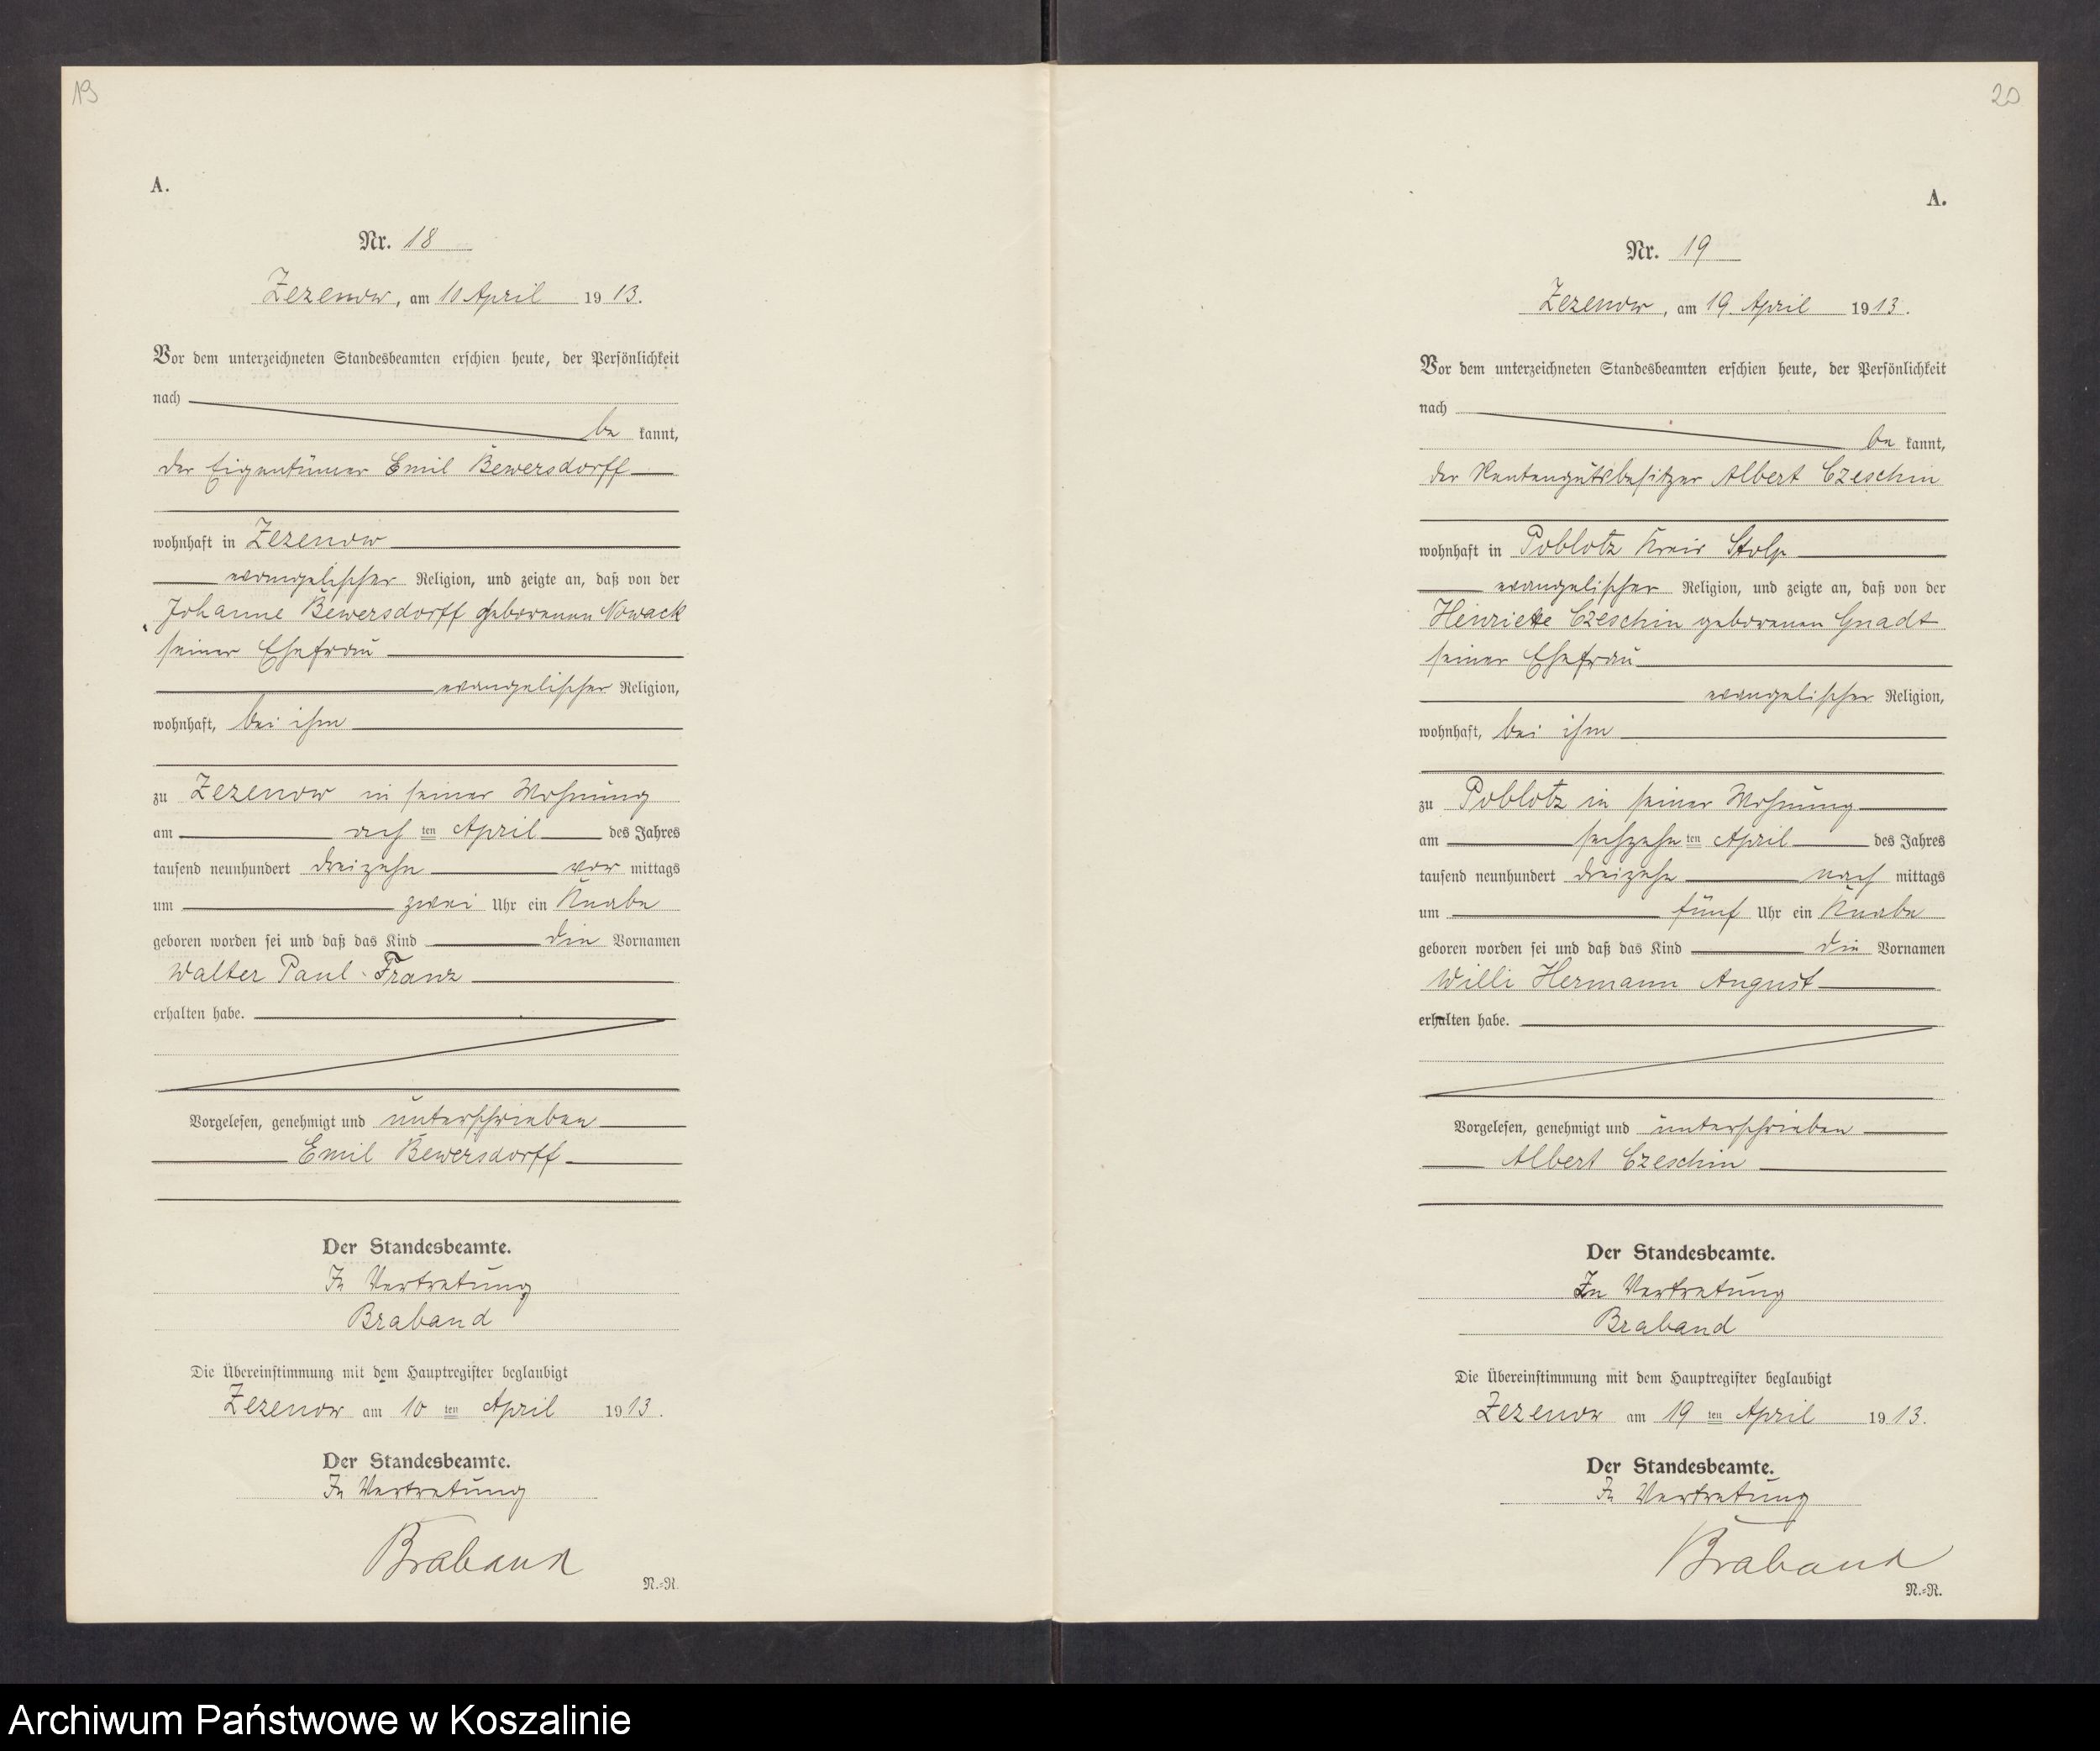 19
A.
Nr. 18
Zezenow, am 10 April 1913.
Vor dem unterzeichneten Standesbeamten erschien heute, der Persönlichkeit
nach
be kannt,
der Eigentümer Emil Bewersdorff
wohnhaft in Zezenow
evangelischer Religion, und zeigte an, daß von der
Johanne Bewersdorff geborenen Nowack
seiner Ehefrau
evangelischer Religion,
wohnhaft, bei ihm
zu Zezenow in seiner Wohnung
am ach ten April des Jahres
tausend neunhundert dreizehn vor mittags
um zwei Uhr ein Knabe
geboren worden sei und daß das Kind die Vornamen
Walter Paul Franz
erhalten habe.
Vorgelesen, genehmigt und unterschrieben
Emil Bewersdorff
Der Standesbeamte.
In Vertretung
Braband
Die Übereinstimmung mit dem Hauptregister beglaubigt
Zezenow am 10 ten April 1913.
Der Standesbeamte.
In Vertretung
Braband
N.=R.
20
A.
Nr. 19
Zezenow, am 19. April 1913.
Vor dem unterzeichneten Standesbeamten erschien heute, der Persönlichkeit
nach
be kannt,
der Rentengutsbesitzer Albert Czeschin
wohnhaft in Poblotz Kreis Stolp
evangelischer Religion, und zeigte an, daß von der
Henriette Czeschin geborenen Gnadt
seiner Ehefrau
evangelischer Religion,
wohnhaft, bei ihm
zu Poblotz in seiner Wohnung
am sechzehn ten April des Jahres
tausend neunhundert dreizehn nach mittags
um fünf Uhr ein Knabe
geboren worden sei und daß das Kind die Vornamen
Willi Hermann August
erhalten habe.
Vorgelesen, genehmigt und unterschrieben
Albert Czeschin
Der Standesbeamte.
In Vertretung
Braband
Die Übereinstimmung mit dem Hauptregister beglaubigt
Zezenow am 19 ten April 1913.
Der Standesbeamte.
In Vertretung
Braband
N.=R.
Archiwum Państwowe w Koszalinie